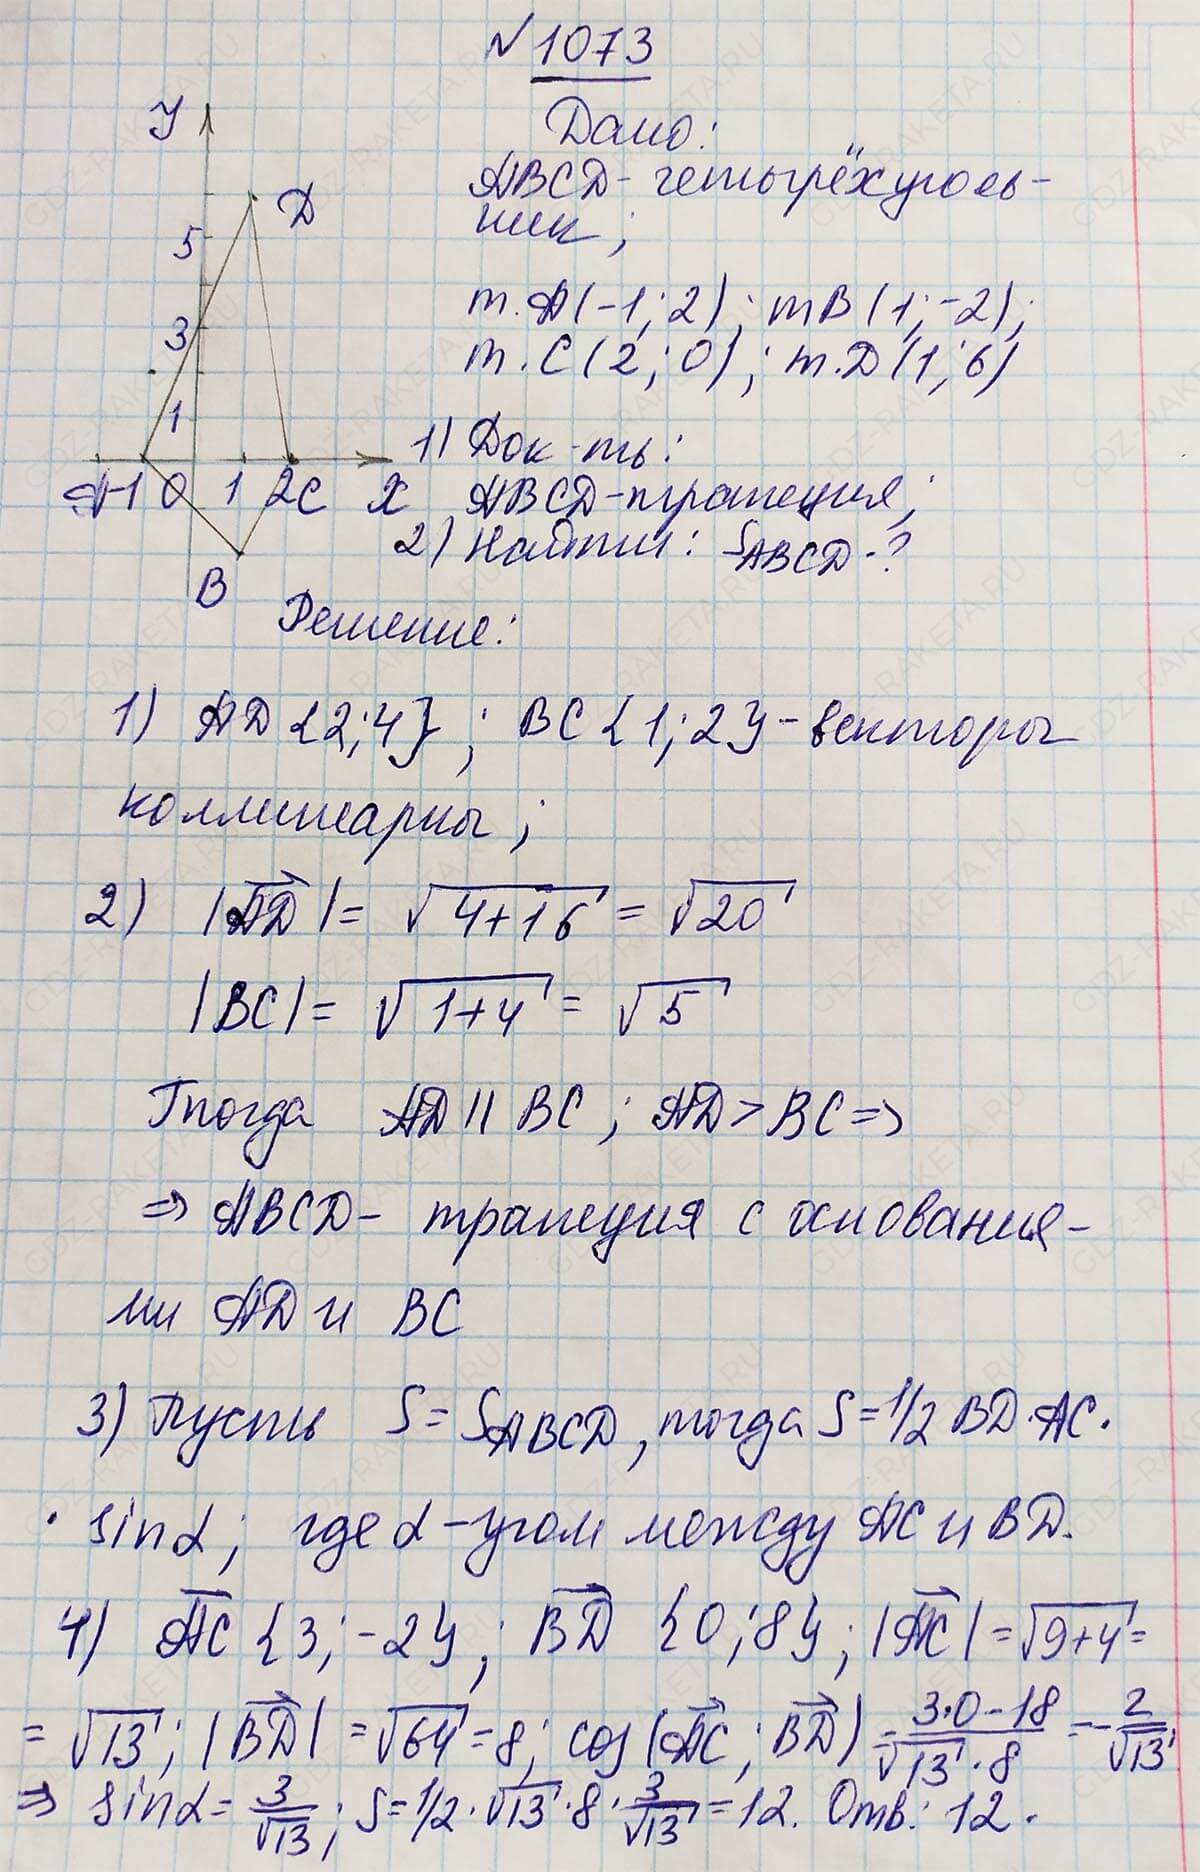 №1073
У
Дано:
ABCD - четырёхуголь-
ник;
D
5
т.A(-1;2); тB(1;-2);
3
т.C(2;0); т.D(1;6)
1
1) Док-ть:
A-1 0 1 2C X ABCD-трапеция;
2) Найти: SABCD-?
B
Решение:
1) AD{2;4}; BC{1;2}-векторы
коллинеарны;
2) |AD| = √4+16 = √20
|BC| = √1+4 = √5
Тогда AD || BC; AD > BC =>
=> ABCD - трапеция с основания-
ми AD и BC
3) Пусть S = SABCD, тогда S = 1/2 BD·AC·
· sinα; где α - угол между AC и BD.
4) AC {3; -2}; BD {0; 8}; |AC| = √9+4 =
= √13; |BD| = √64 = 8; cos(AC; BD) = 3·0-18/√13·8 = -2/√13
=> sinα = 3/√13; S = 1/2·√13·8·3/√13 = 12. Отв: 12.